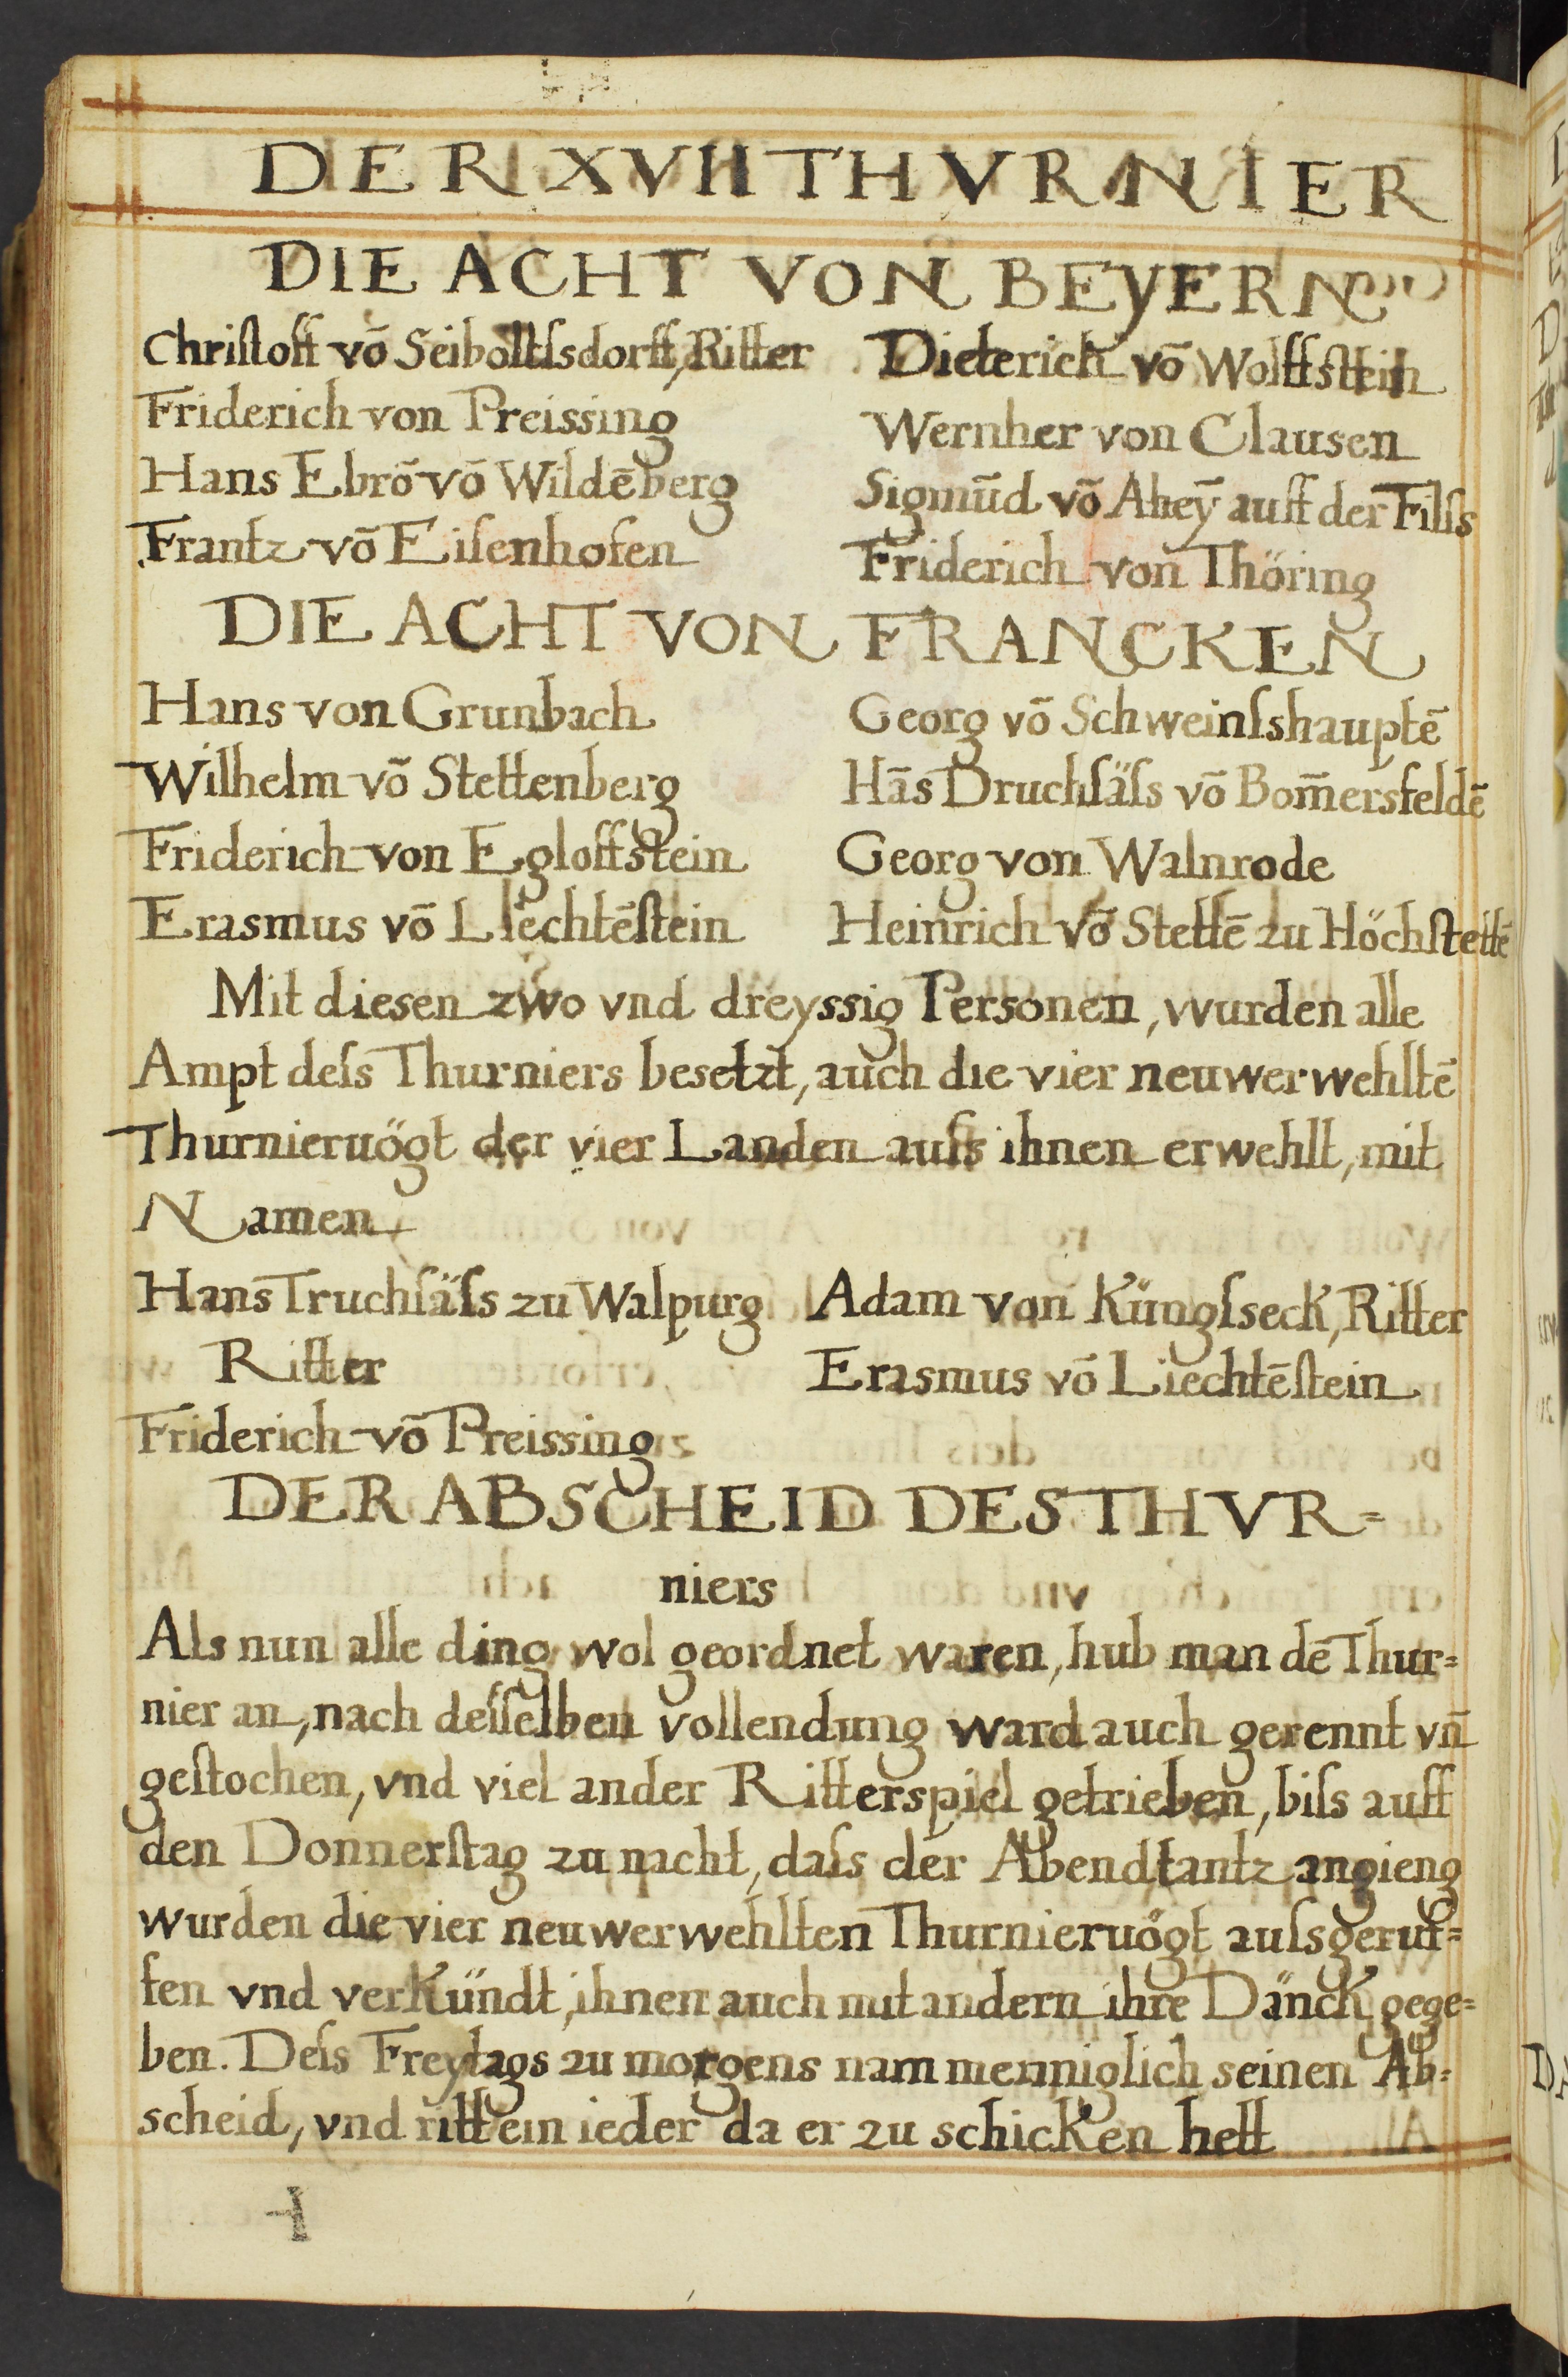 DER XVII THVRNIER
DIE ACHT VON BEYERN
Chriſtoff võ Seiboltſsdorff, Ritter
Friderich von Preissing
Hans Ebrõ võ Wildẽberg
Frantz võ Eiſenhofen
Dieterich võ Wolffſtein
Wernher von Clausen
Sigmũd võ Ahey̅ auff der Filſs
Friderich von Thöring
DIE ACHT VON FRANCKEN
Hans von Grunbach
Wilhelm võ Stettenberg
Friderich von Egloffstein
Erasmus võ Liechtẽſtein
Georg võ Schweinſshauptẽ
Hãs Druchſäſs võ Bom̅ersfeldẽ
Georg von Walnrode
Heinrich võ Stettẽ zu Höchſtettẽ
Mit diesen zwo vnd dreyssig Personen, wurden alle
Ampt deſs Thurniers besetzt, auch die vier neuwerwehltẽ
Thurnieruögt der vier Landen auſs ihnen erwehlt, mit
Namen
Hans Truchſäſs zu Walpurg
Ritter
Friderich võ Preissing
Adam von Küngſseck, Ritter
Erasmus võ Liechtẽſtein
DER ABSCHEID DES THVR=
niers
Als nun alle ding wol geordnet waren, hub man dẽ Thur=
nier an, nach deſſelben vollendung ward auch gerennt vñ
geſtochen, vnd viel ander Ritterspiel getrieben, biſs auff
den Donnerſtag zu nacht, daſs der Abendtantz angieng
wurden die vier neuwerwehlten Thurnieruögt auſsgeruf=
fen vnd verkündt, ihnen auch mit andern ihre Dänck gege=
ben. Deſs Freytags zu morgens nam menniglich seinen Ab=
scheid, vnd ritt ein ieder da er zu schicken hett